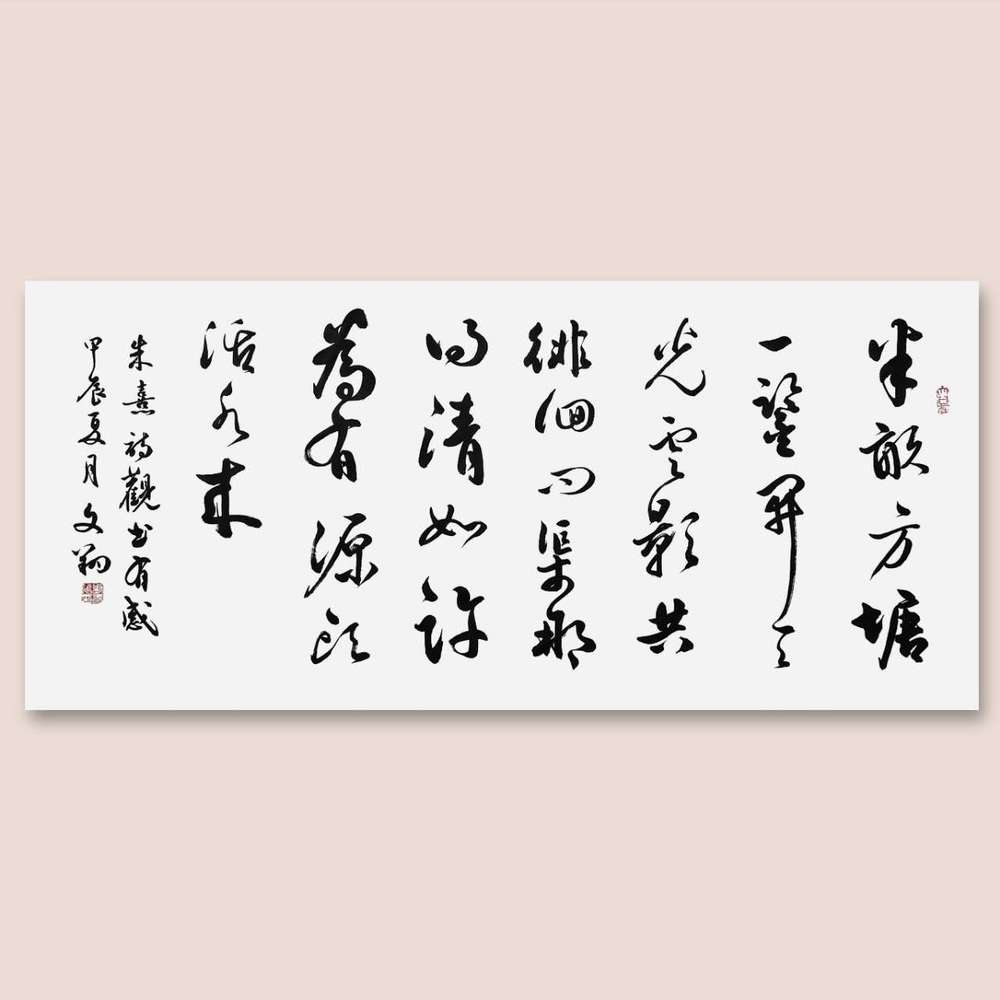 半畝方塘
一鑒開天
光雲影共
徘徊問渠那
得清如許
為有源頭
活水来
朱熹詩觀書有感
甲辰夏月文翔